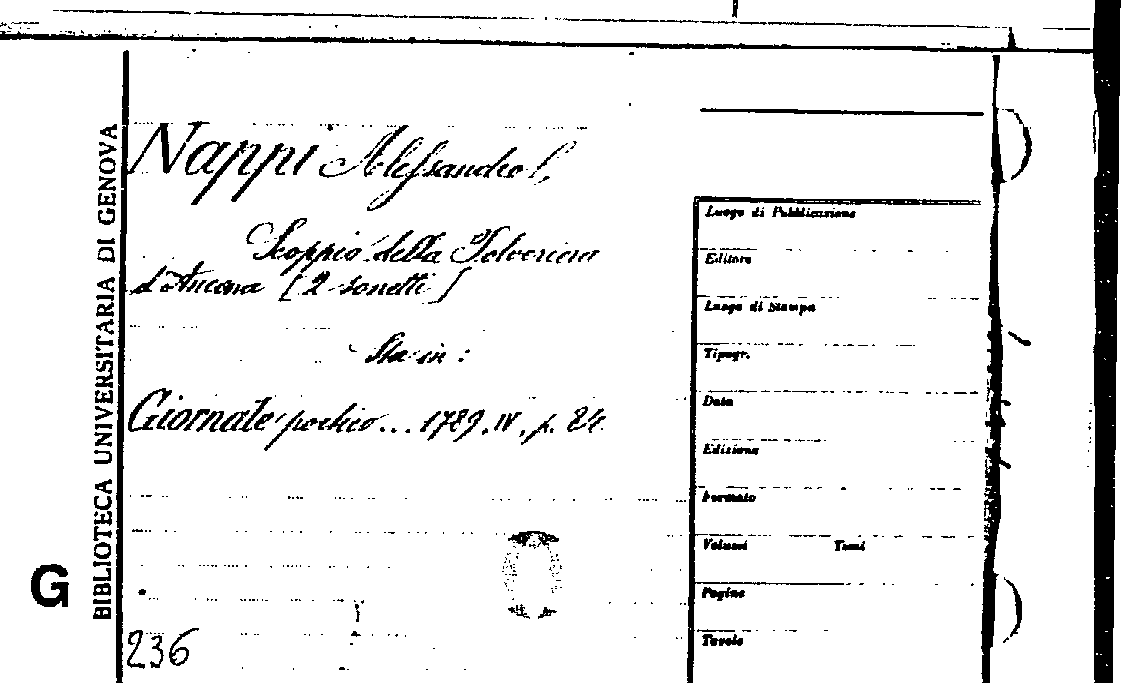 BIBLIOTECA UNIVERSITARIA DI GENOVA
G
Nappi Alessandro
Scoppio della Polveriera
d'Ancona [2 sonetti]
Sta in:
Giornale poetico... 1789, IV, p. 24.
236
Luogo di Pubblicazione
Editore
Luogo di Stampa
Tipogr.
Data
Edizione
Formato
Volumi Tomi
Pagine
Tavole